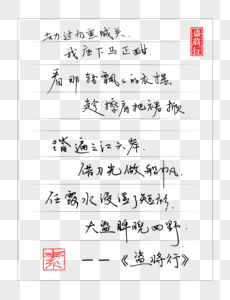 劫过九重城关
我座下马正酣
看那轻飘飘的衣摆
趁擦肩把裙掀
踏遍三江六岸
借刀光做船帆
任露水浸湿了短衫
大盗睥睨四野
——《盗将行》
盗将行